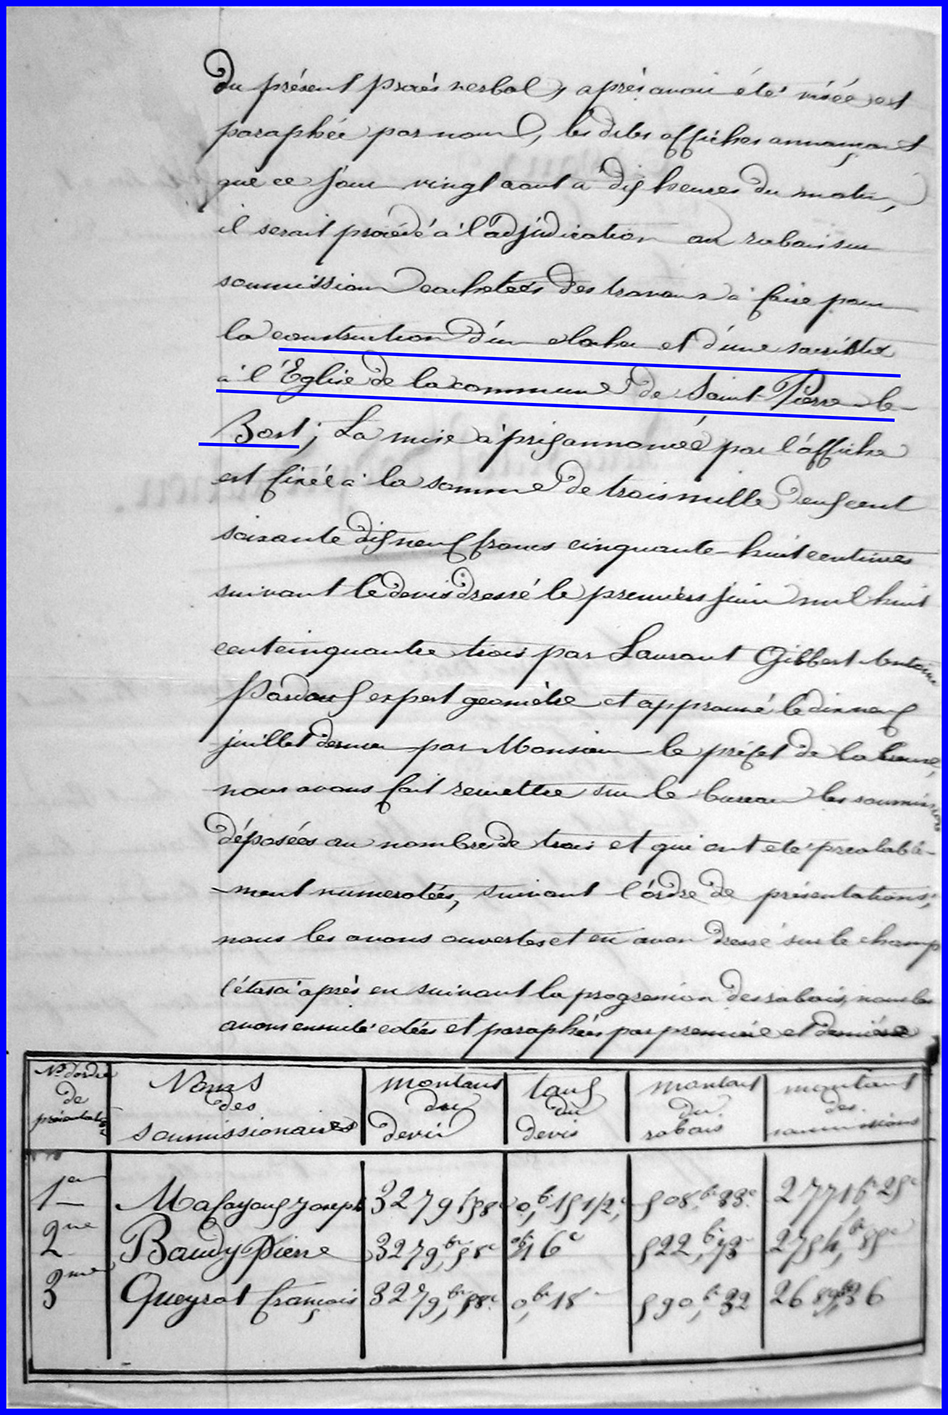 Du présent procès verbal, après avoir été visée et
paraphée par nous, les dites affiches annonçant
que ce jour vingt aout à dix heures du matin,
il serait procédé à l'adjudication au rabais sur
soumission cachetées des travaux à faire pour
la construction d'un clocher et d'une sacristie
à l'Eglise de la commune de Saint Pierre le
Bost; La mise à prix annoncée par l'affiche
est fixée à la somme de trois mille deux cent
soixante dix neuf francs cinquante huit centimes
suivant le devis dressé le premiers juin mil huit
cent cinquante trois par Laurant Gilbert
Pardoux expert geomètre et approuvé le dix neuf
juillet dernier par Monsieur le préfet de la Creuse,
nous avons fait remettre sur le bureau les soumissions
déposées au nombre de trois et qui ont eté préalable-
ment numerotées, suivant l'ordre de présentations,
nous les avons ouvertes et en avon dressé sur le champ
l'état ci après en suivant la progression des rabais, nous les
avons ensuite cotées et paraphées par première et dernière
Nos d'ordre de présentation | Noms des soumissionaires | montant du devis | taux du devis | montant du rabais | montant des soumissions
1er | Masayoux Joseph | 3279f 58c | 0,f 15 1/2,c | 508,f 33c | 2771f 25c
2me | Baudy Pierre | 3279,f 58c | 16c | 522,f 73 | 2754,f 85c
3me | Queyrat françois | 3279,f 58c | 0,f 18 | 590,f 32 | 2689,f 36